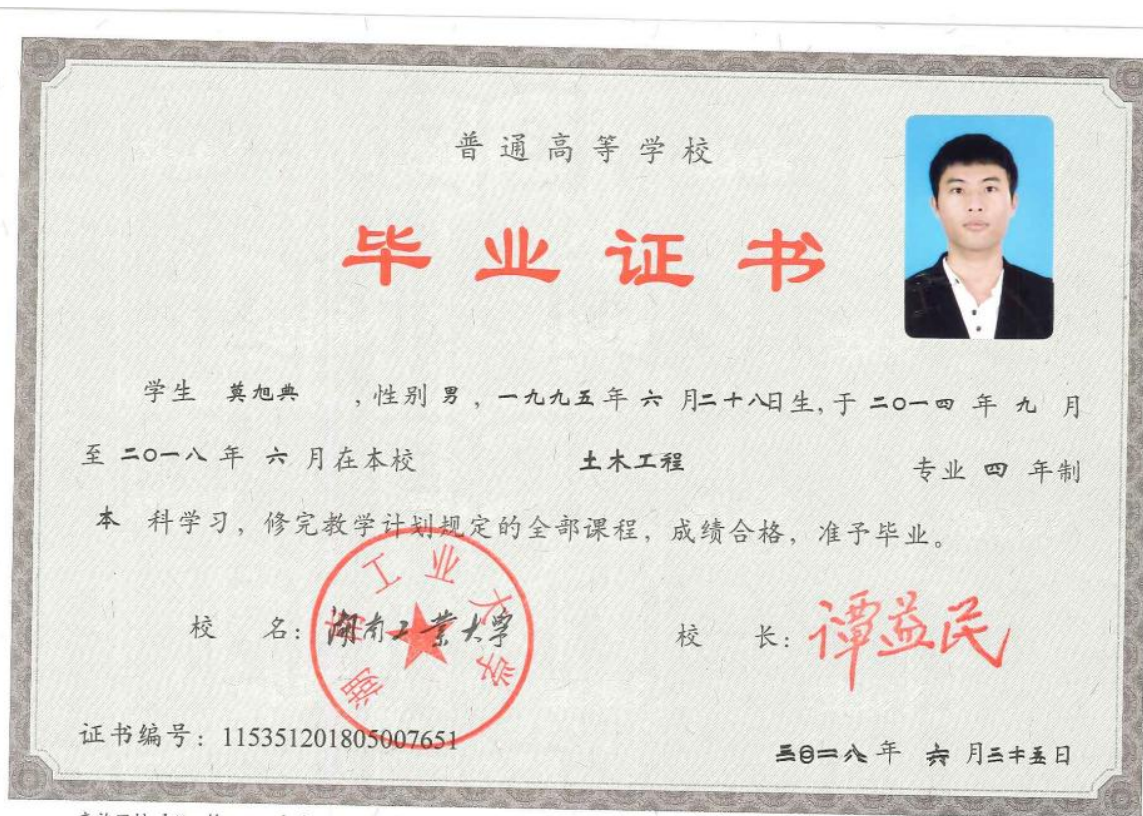 普通高等学校
毕业证书
学生 莫旭典 ,性别 男 ,一九九五年 六 月二十八日生,于 二〇一四 年 九 月
至 二〇一八 年 六 月在本校 土木工程 专业 四 年制
本 科学习,修完教学计划规定的全部课程,成绩合格,准予毕业。
校 名: 湖南工业大学 校 长: 谭益民
湖南工业大学
证书编号: 115351201805007651 二〇一八 年 六 月二十五日